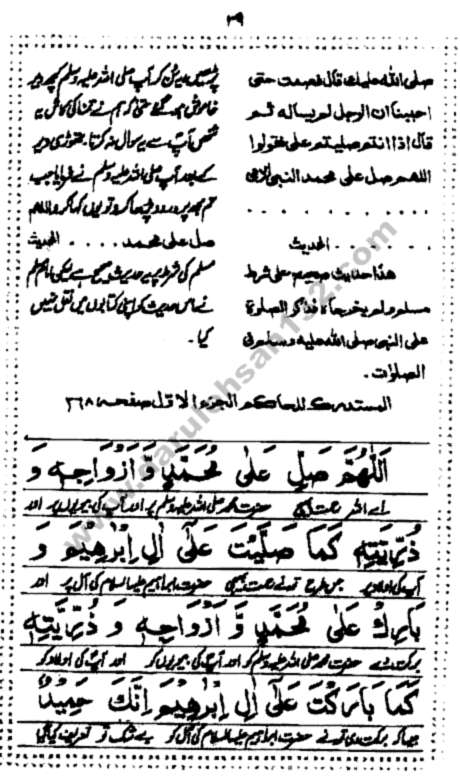 ۳۹
صلی اللہ علیک قال فصمت حتی
احببنا ان الرجل لم یسالہ ثم
قال اذا انتم صلیتم علی فقولوا
اللھم صل علی محمد النبی الامی
. . . . . . . .
. . . . . الحدیث
ھذا حدیث صحیح علی شرط
مسلم ولم یخرجاہ فذکر الصلوۃ
علی النبی صلی اللہ علیہ وسلم فی
الصلوات۔
آپ صلی اللہ علیہ وسلم کچھ دیر
خاموش ہو گئے حتی کہ ہم نے تمنا کی کاش یہ
شخص آپ سے یہ سوال نہ کرتا۔ تھوڑی دیر
کے بعد آپ صلی اللہ علیہ وسلم نے فرمایا جب
تم مجھ پر درود پڑھا کرو تو یوں کہا کرو اللھم
صل علی محمد . . . . الحدیث
مسلم کی شرط پر یہ حدیث صحیح ہے لیکن امام مسلم
نے اس حدیث کو اپنی کتابوں میں نقل نہیں
کیا۔
المستدرک للحاکم الجزء الاول صفحہ ۲۶۸
اَللّٰهُمَّ صَلِّ عَلٰى مُحَمَّدٍ وَّ اَزْوَاجِهٖ وَ
اے اللہ رحمت بھیج حضرت محمد صلی اللہ علیہ وسلم پر اور آپ کی بیویوں پر اور
ذُرِّيَّتِهٖ كَمَا صَلَّيْتَ عَلٰى اٰلِ اِبْرٰهِيْمَ وَ
آپ کی اولاد پر جس طرح تو نے رحمت بھیجی حضرت ابراہیم علیہ السلام کی آل پر اور
بَارِكْ عَلٰى مُحَمَّدٍ وَّ اَزْوَاجِهٖ وَ ذُرِّيَّتِهٖ
برکت دے حضرت محمد صلی اللہ علیہ وسلم کو اور آپ کی بیویوں کو اور آپ کی اولاد کو
كَمَا بَارَكْتَ عَلٰى اٰلِ اِبْرٰهِيْمَ اِنَّكَ حَمِيْدٌ
جیسا کہ برکت دی تو نے حضرت ابراہیم علیہ السلام کی آل کو بے شک تو تعریف کیا گیا
www.darulehsan132.com